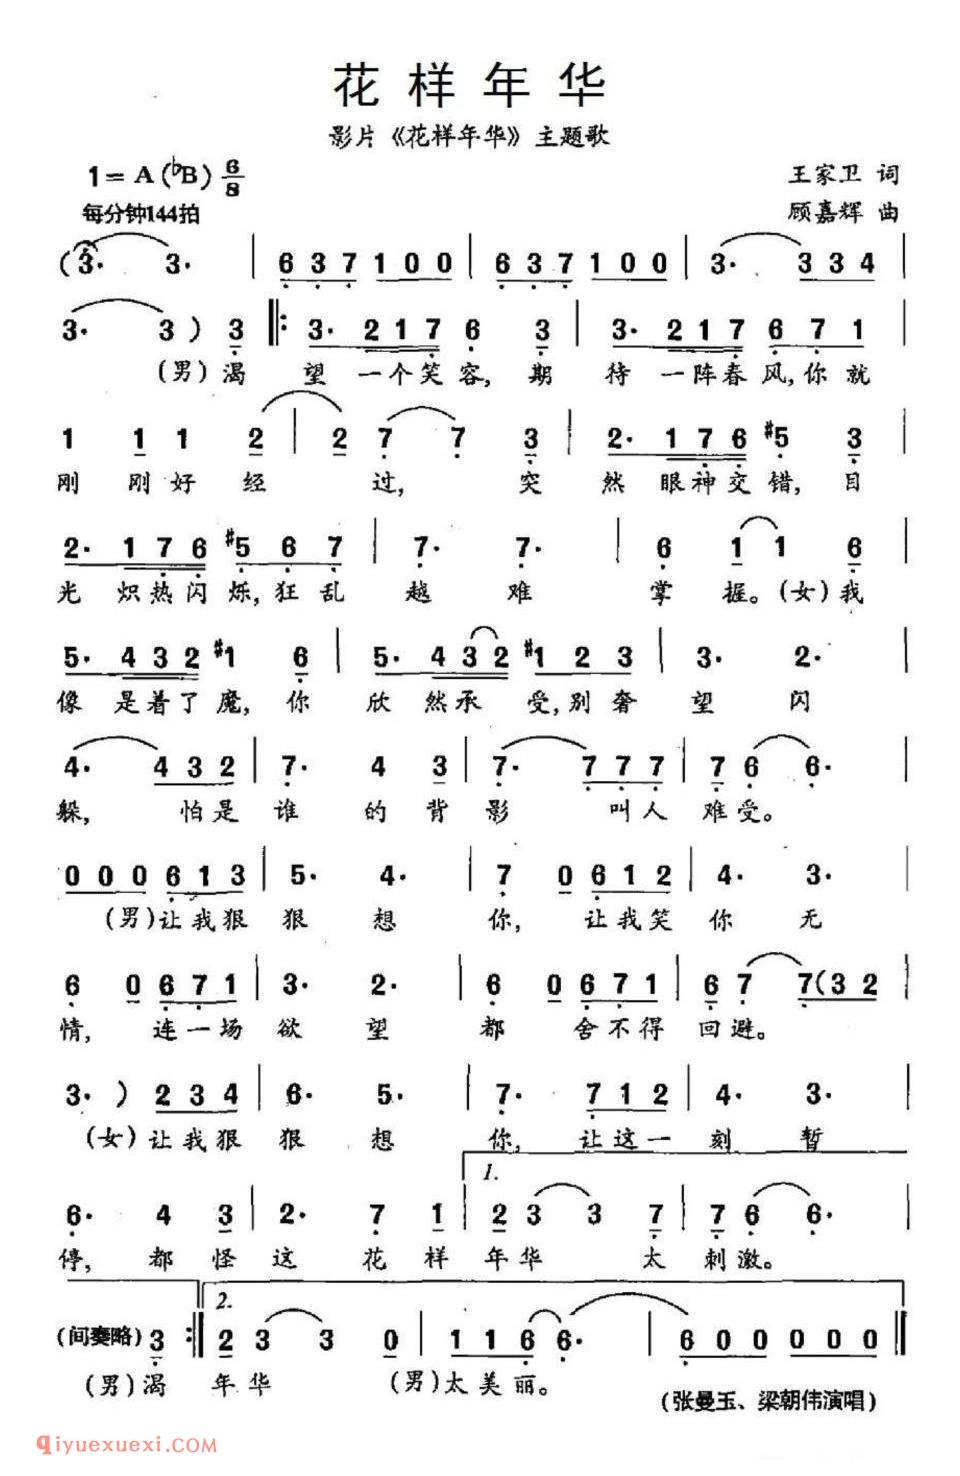 花样年华
影片《花样年华》主题歌
1=A(♭B) 6/8 王家卫 词
每分钟144拍 顾嘉辉 曲
(3. 3. | 6 3 7 1 0 0 | 6 3 7 1 0 0 | 3. 3 3 4 |
3. 3 ) 3 ‖: 3. 2 1 7 6 3 | 3. 2 1 7 6 7 1 |
(男)渴 望 一个笑容, 期 待 一阵春风,你就
1 1 1 2 | 2 7 7 3 | 2. 1 7 6 #5 3 |
刚 刚好 经 过, 突 然 眼神交错, 目
2. 1 7 6 #5 6 7 | 7. 7. | 6 1 1 6 |
光 炽热闪烁,狂乱 越 难 掌 握。(女)我
5. 4 3 2 #1 6 | 5. 4 3 2 #1 2 3 | 3. 2. |
像 是着了魔,你 欣 然承 受,别奢 望 闪
4. 4 3 2 | 7. 4 3 | 7. 7 7 7 | 7 6 6. |
躲, 怕是 谁 的 背 影 叫人 难受。
0 0 0 6 1 3 | 5. 4. | 7 0 6 1 2 | 4. 3. |
(男)让我狠 狠 想 你, 让我笑 你 无
6 0 6 7 1 | 3. 2. | 6 0 6 7 1 | 6 7 7(3 2 |
情, 连一场 欲 望 都 舍不得 回避。
3. ) 2 3 4 | 6. 5. | 7. 7 1 2 | 4. 3. |
(女)让我狠 狠 想 你, 让这一 刻 暂
1.
6. 4 3 | 2. 7 1 | 2 3 3 7 | 7 6 6. |
停, 都 怪 这 花 样 年华 太 刺激。
2.
(间奏略) 3 :‖ 2 3 3 0 | 1 1 6 6. | 6 0 0 0 0 0 ‖
(男)渴 年华 (男)太美丽。
(张曼玉、梁朝伟演唱)
qiyuexuexi.com